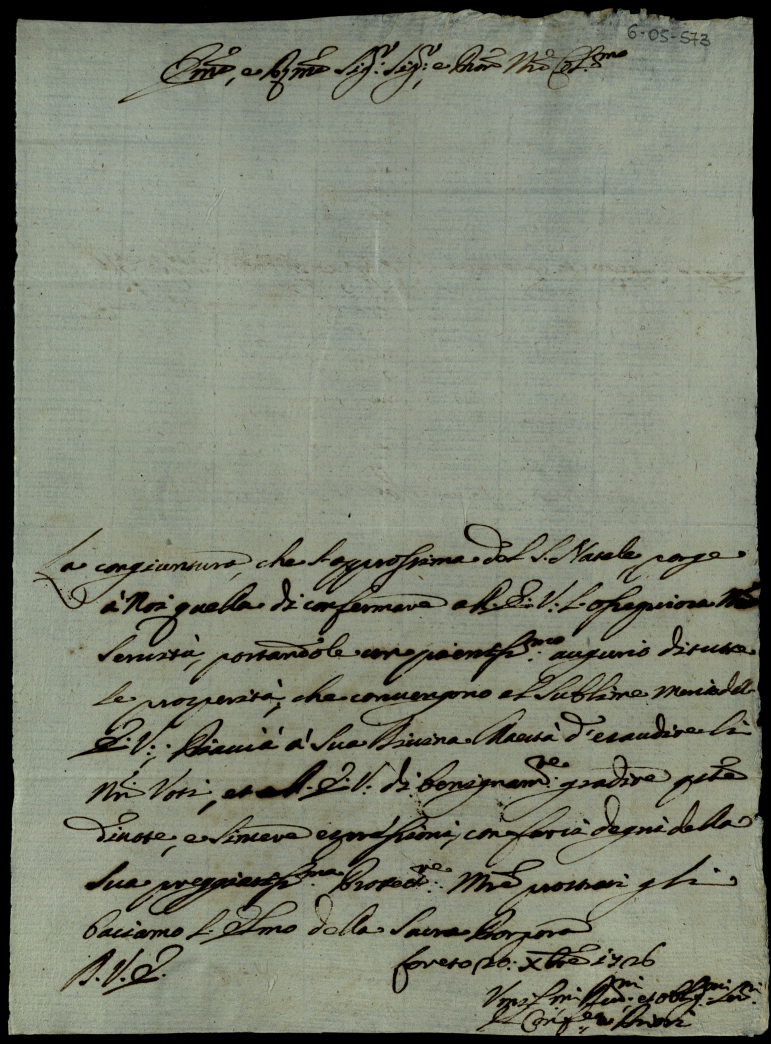 6-05-573
Em̃o, e Rm̃o Sig.r Sig.r e Pñe Nr̃o Col.mo
La congiuntura, che s'approssima del S. Natale porge
à Noi quella di confermare all'E. V. l'ossequiosa
servitù, portandole un pienissi.mo augurio di tutte
le prosperità, che convengono al sublime merito dell'
E. V. Piaccia à Sua Divina Maestà d'esaudire li
Nr̃i Voti, et all'E. V. di benignam.te gradire q̃ste
divote, e sincere espressioni, con farci degni della
sua preggiatiss.ma Protect.ne Mr̃e prostrati gli
baciamo l'El̃mo della Sacra Porpora
D. V. E. Loreto 20: Xbr̃e 1726
Vm̃i Dev.mi et obblig.mi Ser.ri
Il Conf.re e Priori